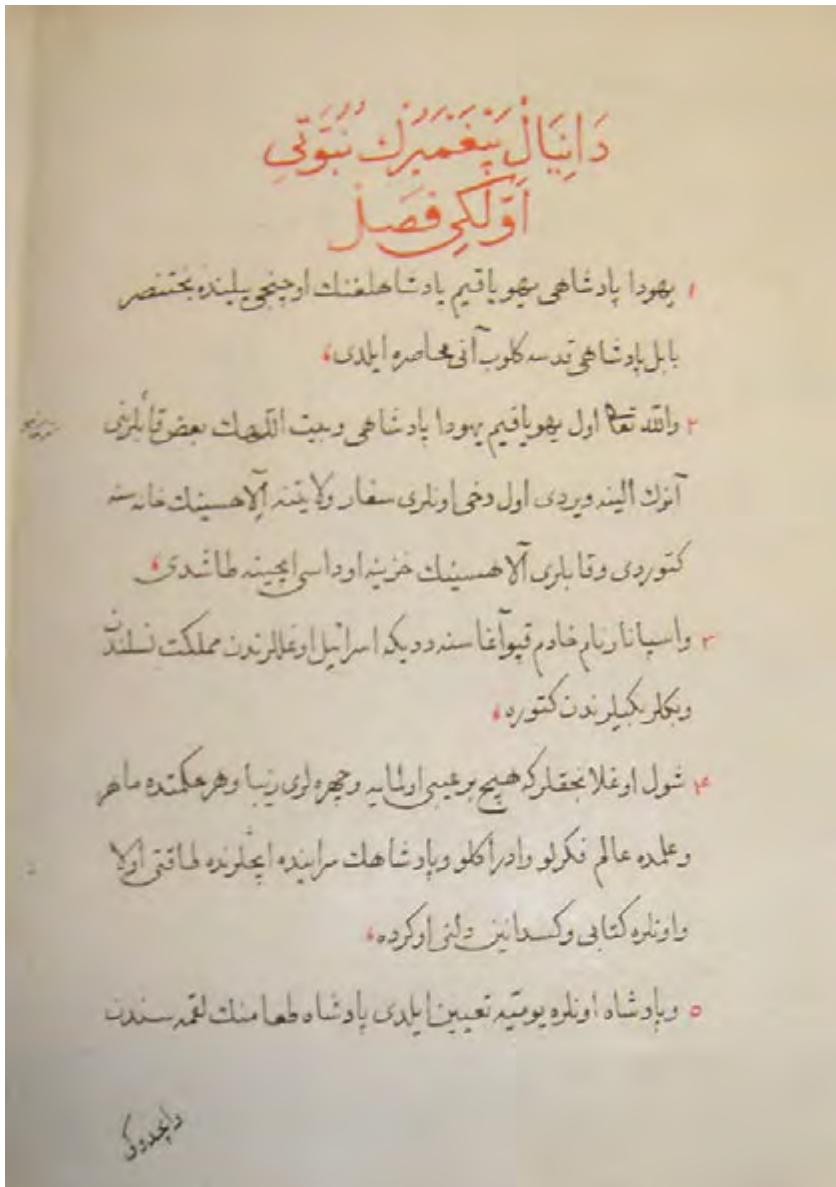 دَانِيَالْ پَيْغَمْبَرِكْ نُبُوَّتِى
اَوَّلْكِى فَصِلْ
١ يهودا پادشاهى يهوياقيم پادشاهلغنك اوچنجى ييلنده بختنصر
بابل پادشاهى قدسه كلوب آنى محاصره ايلدى،
٢ والله تعالى اول يهوياقيم يهودا پادشاهى وبيت اللهك بعض قابلرينى
آنوك الينه ويردى اول دخى اونلرى سنعار ولايتنه آلاهسينك خانه سنه
كتوردى وقابلرى آلاهسينك خزينه اوداسى ايچينه طاشدى،
٣ واسپاناز نام خادم قپوآغا سنه دديكه اسرائيل اوغللرندن مملكت نسلندن
وبكلربكيلرندن كتوره،
۴ شول اوغلانجقلركه هيچ بر عيبى اولمايه وچهره لرى زيبا وهر حكمتده ماهر
وعلمده عالم فكرلو وادراكلو وپادشاهك سراينده ايچلرنده طاقتى اولا
واونلره كتابى وكسدانين دلنى اوكرده،
٥ وپادشاه اونلره يوميّه تعيين ايلدى پادشاه طعامنك لقمه سندن